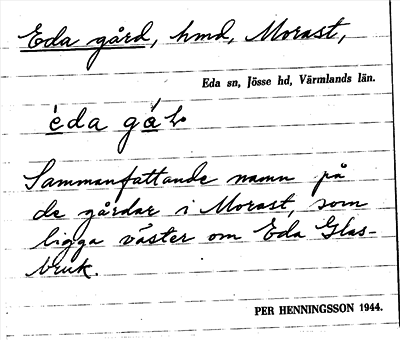 Eda gård, hmd, Morast,
Eda sn, Jösse hd, Värmlands län.
Sammanfattande namn på
de gårdar i Morast, som
ligga väster om Eda Glas-
bruk.
PER HENNINGSSON 1944.